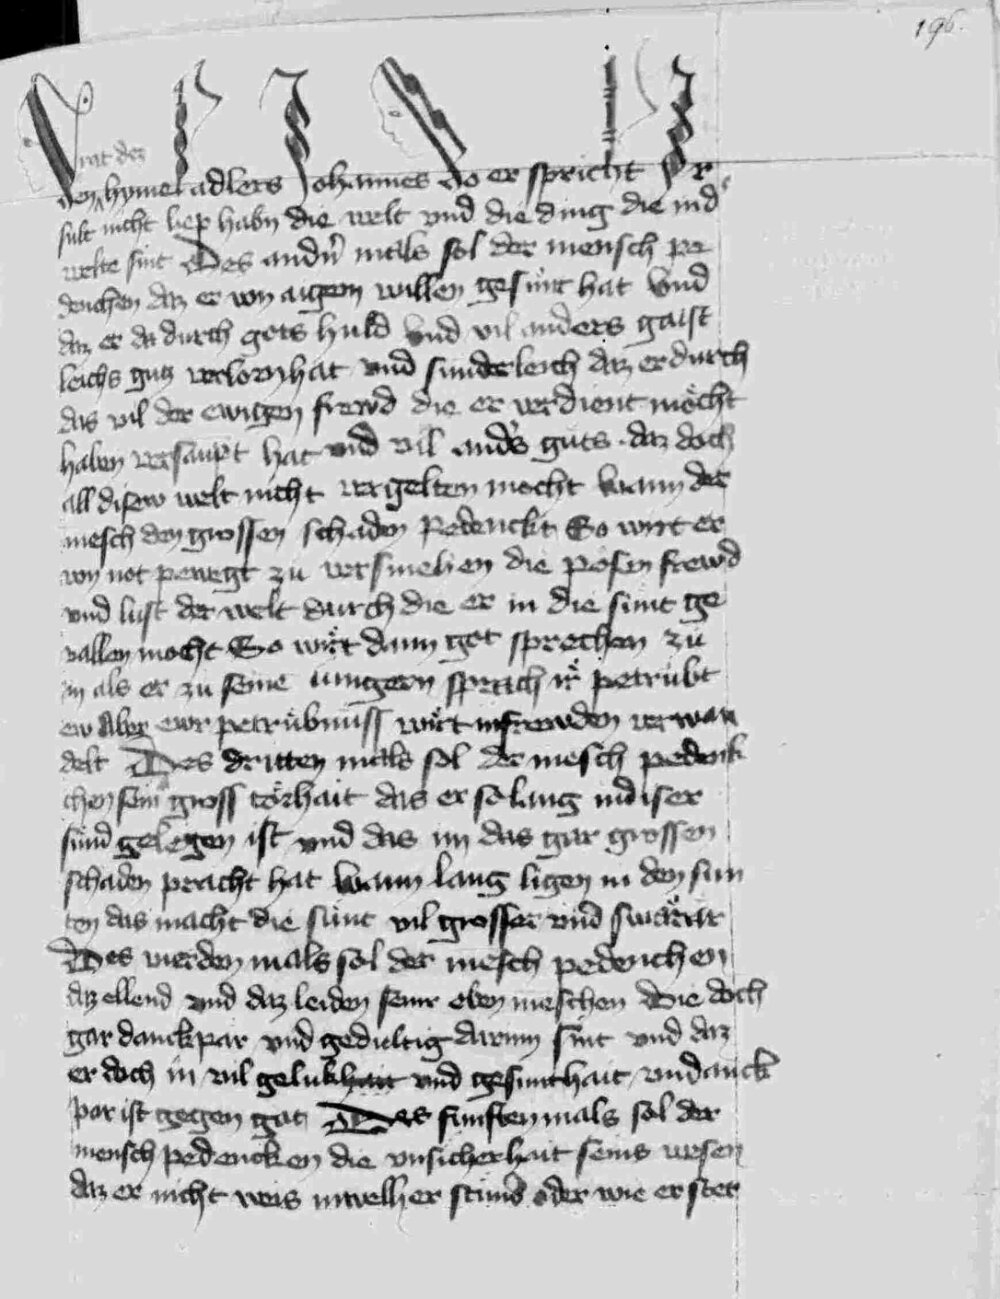 196.
rat dez
den hymel adlers Johannes do er spricht Ir
sult nicht liep habn die welt vnd die ding die in d
welte sint Des andn mals sol der mensch pe
denchen daz er von aigem willen gesunt hat Vnd
daz er da durch gots huld vnd vil anders gaist
leichs gutz verlorn hat vnd sunderleich daz er durch
das vil der ewigen frewd die er verdient möcht
haben versaupt hat vnd vil anders guts daz doch
all disew welt nicht vergelten mocht wann der
mesch den grossen schaden Pedenckt So wirt er
von not pewegt zu versmehen die posen frewd
vnd lust der welt durch die er in die sunt ge
vallen mocht So wirt dann got sprechen zu
im als er zu seine iungern sprach ir petrübt
ew Aber ewr petrübnuss wirt in frewden verwan
delt Des dritten mals sol der mesch pedenk
chen sein gross torhait das er so lang in diser
sund gelegen ist vnd das im das gar grossen
schaden pracht hat wann lang ligen in den sun
ten das macht die sunt vil grosser vnd swärär
Des vierden mals sol der mesch pedenchen
daz ellend vnd daz leiden seinr eben meschen Die doch
gar danckpar vnd gedultig darum sint vnd daz
er doch in vil gelukhait vnd gesunthait vndanck
par ist gegen got Des funften mals sol der
mensch pedencken die vnsicherhait seins wesen
daz er nicht wais in welher stund oder wie er sterb